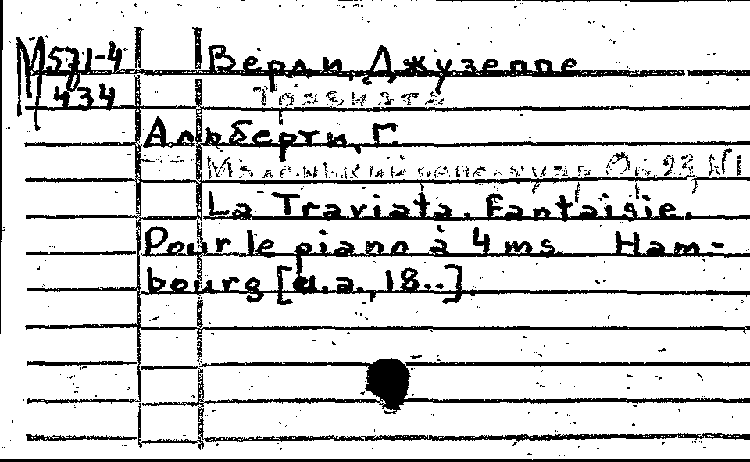 М 571-4
434
Верди, Джузеппе
Травиата
Альберти, Г.
Маленький репертуар Op. 23, N1
La Traviata. Fantaisie.
Pour le piano à 4 ms Ham-
bourg [u.a., 18..].